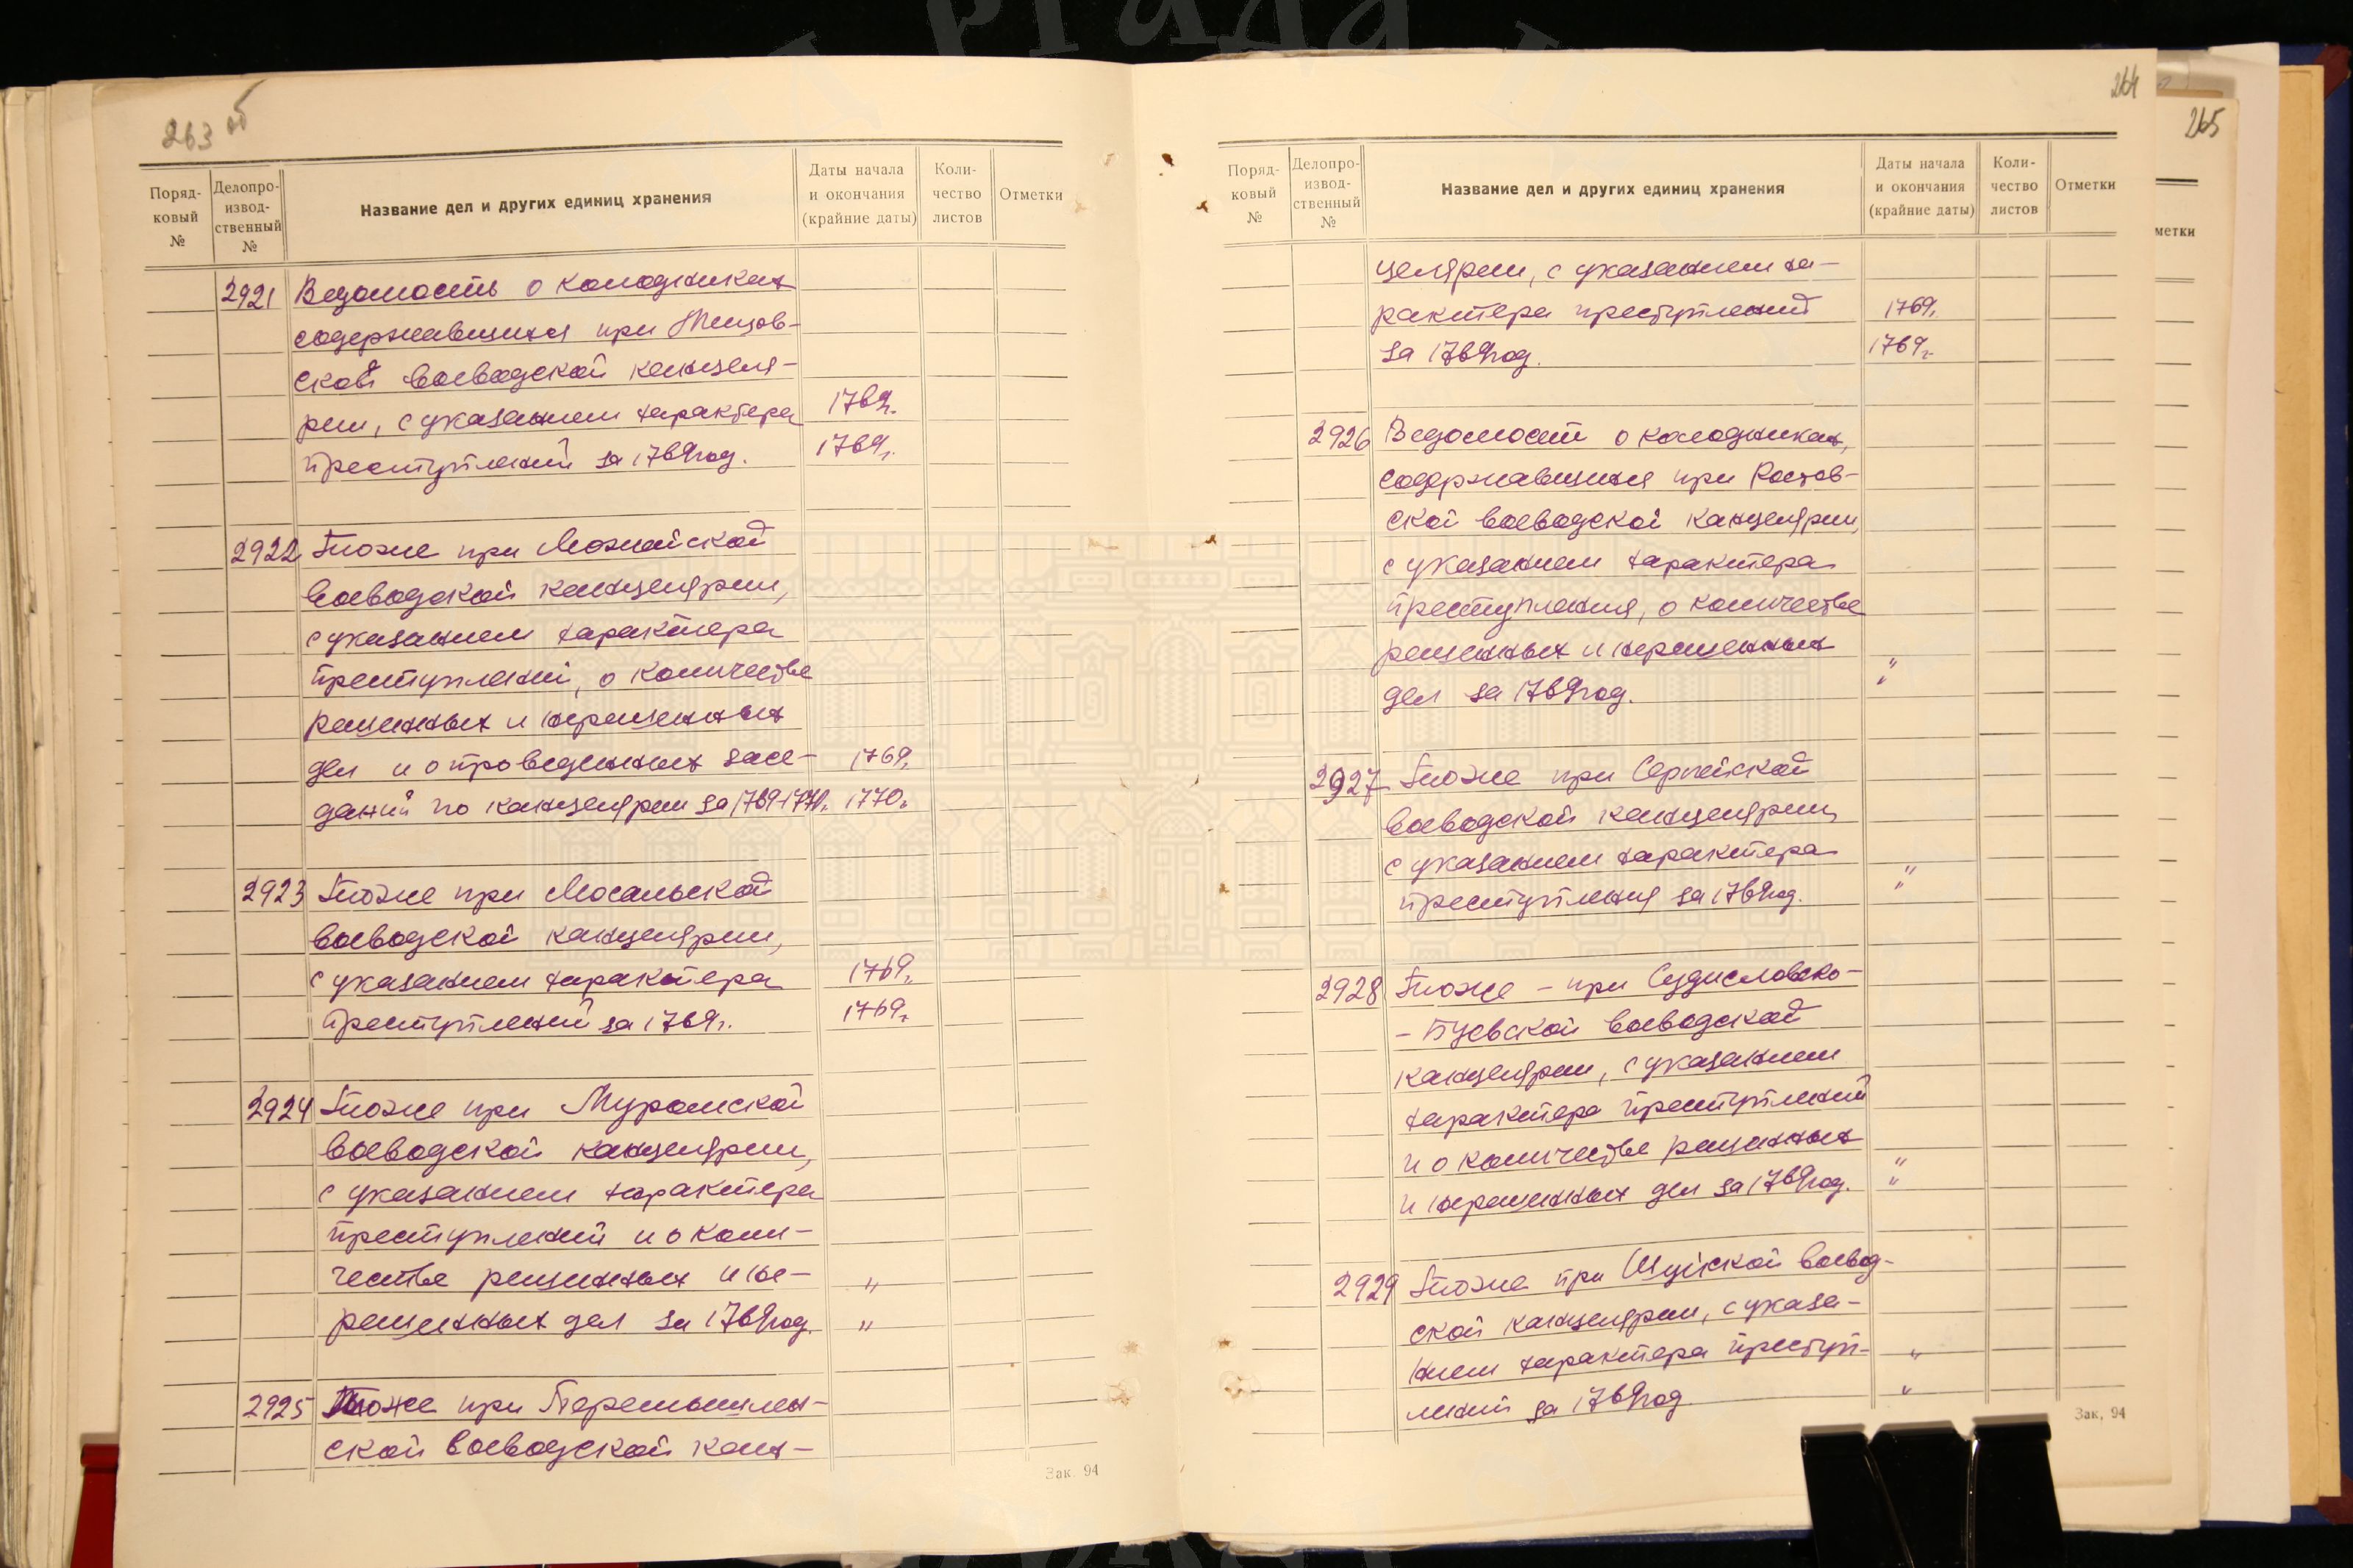 263 об
Поряд-
ковый
№
Делопро-
извод-
ственный
№
Название дел и других единиц хранения
Даты начала
и окончания
(крайние даты)
Коли-
чество
листов
Отметки
2921 Ведомость о колодниках
содержавшихся при
ской воеводской канцеля-
рии, с указанием характера 1769г.
преступлений за 1769год. 1769г.
2922 Тоже при Можайской
воеводской канцелярии,
с указанием характера
преступлений, о количестве
решенных и нерешенных
дел и о проведенных засе- 1769г.
даний по канцелярии за 1769-1770г. 1770г.
2923 Тоже при Мосальской
воеводской канцелярии,
с указанием характера 1769г.
преступлений за 1769г. 1769г.
2924 Тоже при Муромской
воеводской канцелярии,
с указанием характера
преступлений и о коли-
честве решенных и не- "
решенных дел за 1769год. "
2925 Тоже при Перемышлен-
ской воеводской кан-
Зак. 94
264
Поряд-
ковый
№
Делопро-
извод-
ственный
№
Название дел и других единиц хранения
Даты начала
и окончания
(крайние даты)
Коли-
чество
листов
Отметки
целярии, с указанием ха-
рактера преступлений 1769г.
за 1769год. 1769г.
2926 Ведомости о колодниках,
содержавшихся при Ростов-
ской воеводской канцелярии,
с указанием характера
преступления, о количестве
решенных и нерешенных "
дел за 1769год. "
2927 Тоже при Серпейской
воеводской канцелярии,
с указанием характера "
преступления за 1769год. "
2928 Тоже - при Судисловско-
- Буевской воеводской
канцелярии, с указанием
характера преступлений
и о количестве решенных "
и нерешенных дел за 1769год. "
2929 Тоже при Шуйской воевод-
ской канцелярии, с указа-
нием характера преступ- "
лений за 1769год "
Зак. 94
265
метки